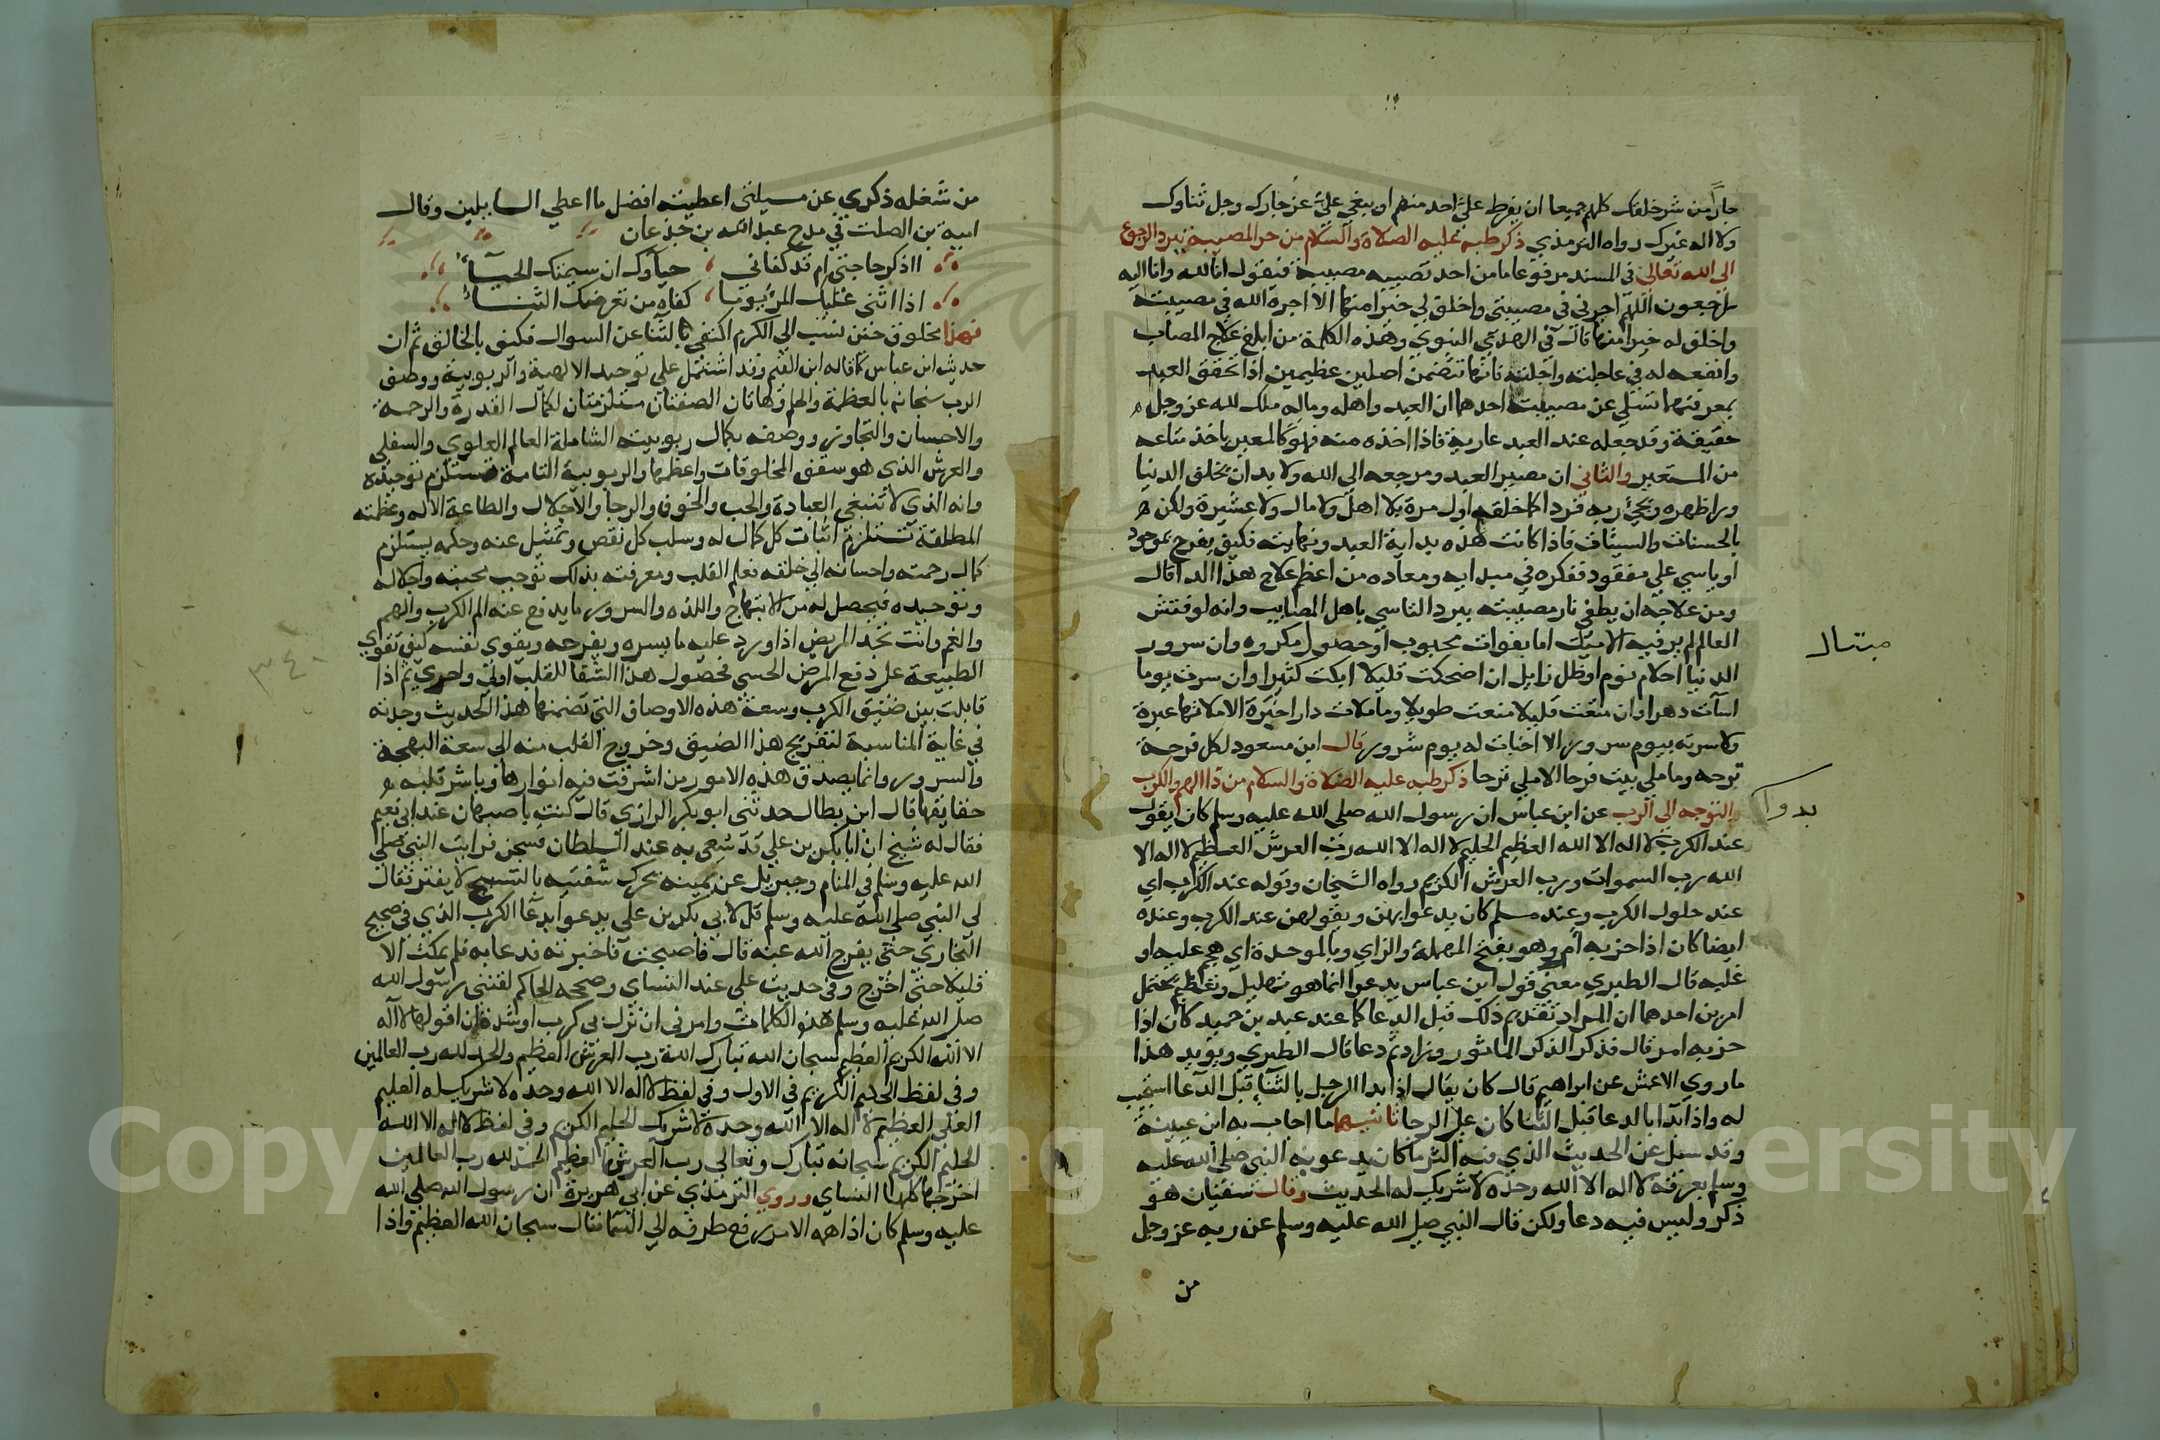 جارا من شر خلقك كلهم جميعا ان يفرط علي احد منهم او يبغي علي عز جارك وجل ثناوك
ولا اله غيرك رواه الترمذي ذكر طبه عليه الصلاة والسلام من حر المصيبة ببرد الرجوع
الى الله تعالى في المسند مرفوعا ما من احد تصيبه مصيبة فيقول انا لله وانا اليه
راجعون اللهم اجرني في مصيبتي واخلف لي خيرا منها الا اجره الله في مصيبته
واخلف له خيرا منها قال في الهدي النبوي وهذه الكلمة من ابلغ علاج المصاب
وانفعه له في عاجلته واجلته فانها تتضمن اصلين عظيمين اذا تحقق العبد
بمعرفتهما تسلي عن مصيبته احدهما ان العبد واهله وماله ملك لله عز وجل
حقيقة وقد جعله عند العبد عارية فاذا اخذه منه فهو كالمعير ياخذ متاعه
من المستعير والثاني ان مصير العبد ومرجعه الى الله ولا بد ان يخلف الدنيا
ورا ظهره ويجئ ربه فردا كما خلقه اول مرة بلا اهل ولا مال ولا عشيرة ولكن
بالحسنات والسيئات فاذا كانت هذه بداية العبد ونهايته فكيف يفرح بموجود
او ياسي علي مفقود ففكره في مبدايه ومعاده من اعظم علاج هذا الدا قال
ومن علاجه ان يطفي نار مصيبته ببرد التاسي باهل المصايب وانه لو فتش
العالم لم ير فيه الا مبتلي اما بفوات محبوب او حصول مكروه وان سرور
الدنيا احلام نوم او ظل زايل ان اضحكت قليلا ابكت كثيرا وان سرت يوما
اسآت دهرا وان متعت قليلا منعت طويلا وما ملات دارا خيرة الا ملاتها عبرة
ولا سرته بيوم سرور الا اخبات له يوم شرور قال ابن مسعود لكل فرحة
ترحه وما ملي بيت فرحا الا ملي ترحا ذكر طبه عليه الصلاة والسلام من دا الهم والكرب
والتوجه الى الرب عن ابن عباس ان رسول الله صلى الله عليه وسلم كان يقول
عند الكرب لا اله الا الله العظيم الحليم لا اله الا الله رب العرش العظيم لا اله الا
الله رب السموات ورب العرش الكريم رواه الشيخان وقوله عند الكرب اي
عند حلول الكرب وعند مسلم كان يدعوا بهن ويقولهن عند الكرب وعنده
ايضا كان اذا حزبه امر وهو بفتح المهملة والزاي وبالموحدة اي هجم عليه او
غلبه قال الطبري معنى قول ابن عباس يدعوا انما هو تهليل وتعظيم يحتمل
امرين احدهما ان المراد تقديم ذلك قبل الدعا كما عند عبد بن حميد كان اذا
حزبه امر قال فذكر الذكر الماثور وزاد ثم دعا قال الطبري ويويد هذا
ما روي الاعمش عن ابراهيم قال كان يقال اذا بدا الرجل بالثنا قبل الدعا استجيب
له واذا بدا بالدعا قبل الثنا كان على الرجا ثانيهما ما اجاب به ابن عيينة
وقد سئل عن الحديث الذي فيه اكثر ما كان يدعو به النبي صلى الله عليه
وسلم بعرفة لا اله الا الله وحده لا شريك له الحديث وقال سفيان هو
ذكر وليس فيه دعا ولكن قال النبي صلى الله عليه وسلم عن ربه عز وجل
من
بدوا
من شغله ذكري عن مسيلتي اعطيته افضل ما اعطي السايلين وقال
امية بن الصلت في مدح عبد الله بن جدعان
ااذكر حاجتي ام قد كفاني حياوك ان شيمتك الحياء
اذا اثنى عليك المر يوما كفاه من تعرضك الثناء
فهذا مخلوق حين نسب الى الكرم اكتفي بالثنا عن السوال فكيف بالخالق ثم ان
حديث ابن عباس كما قاله ابن القيم وقد اشتمل على توحيد الالهية والربوبية ووصف
الرب سبحانه بالعظمة والحلم وهاتان الصفتان مستلزمتان لكمال القدرة والرحمة
والاحسان والتجاوز ووصفه بكمال ربوبيته الشاملة العالم العلوي والسفلي
والعرش الذي هو سقف المخلوقات واعظمها والربوبية التامة تستلزم توحيده
وانه الذي لا تنبغي العبادة والحب والخوف والرجا والاجلال والطاعة الا له وعظمته
المطلقة تستلزم اثبات كل كمال له وسلب كل نقص وتمثيل عنه وحلمه يستلزم
كمال رحمته واحسانه الى خلقه فعلم القلب ومعرفته بذلك توجب محبته واجلاله
وتوحيده فيحصل له من الابتهاج واللذه والسرور ما يدفع عنه الم الكرب والهم
والغم وانت تجد المريض اذا ورد عليه ما يسره ويفرحه ويقوي نفسه كيف تقوي
الطبيعة على دفع المرض الحسي فحصول هذا الشفا للقلب اولى واحري ثم اذا
قابلت بين ضيق الكرب وسعة هذه الاوصاف التي تضمنها هذا الحديث وجدته
في غاية المناسبة لتفريج هذا الضيق وخروج القلب منه الى سعة البهجة
والسرور وانما يصدق هذه الامور من اشرقت فيه انوارها وباشر قلبه
حقايقها قال ابن بطال حدثني ابو بكر الرازي قال كنت باصبهان عند ابي نعيم
فقال له شيخ ان ابا بكر بن علي قد سعي به عند السلطان فسجن فرايت النبي صلى
الله عليه وسلم في المنام وجبريل عن يمينه يحرك شفتيه بالتسبيح لا يفتر فقال
لي النبي صلى الله عليه وسلم قل لابي بكر بن علي يدعو بدعا الكرب الذي في صحيح
البخاري حتى يفرج الله عنه قال فاصبحت فاخبرته فدعا به فلم يمكث الا
قليلا حتى اخرج وفي حديث علي عند النساي وصححه الحاكم لقنني رسول الله
صلى الله عليه وسلم هذه الكلمات وامرني ان نزل بي كرب او شدة ان اقولها لا اله
الا الله الكريم العظيم سبحان الله تبارك الله رب العرش العظيم والحمد لله رب العالمين
وفي لفظ الحليم الكريم في الاول وفي لفظ لا اله الا الله وحده لا شريك له العليم
العلي العظيم لا اله الا الله وحده لا شريك الحليم الكريم وفي لفظ لا اله الا الله
الحليم الكريم سبحانه تبارك وتعالى رب العرش العظيم الحمد لله رب العالمين
اخرجها كلها النساي وروي الترمذي عن ابي هريرة ان رسول الله صلى الله
عليه وسلم كان اذا همه الامر رفع طرفه الى السما فقال سبحان الله العظيم واذا
٣٤٠
Copy
ng
versity